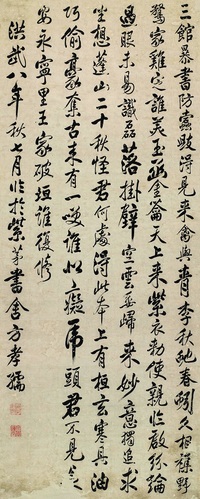 三館暴書防蠹毀得見來禽與青李秋蛇春蚓久相雜野
鶩家雞定誰美玉函金籥天上來紫衣勅使親臨啟紛綸
過眼未易識磊落掛壁空雲委歸來妙意獨追求
坐想蓬山二十秋怪君何處得此本上有桓玄寒具油
巧偷豪奪古來有一唉誰似癡虎頭君不見長
安永寧里王家破垣誰復修
洪武八年秋七月作於紫茅書舍方孝孺